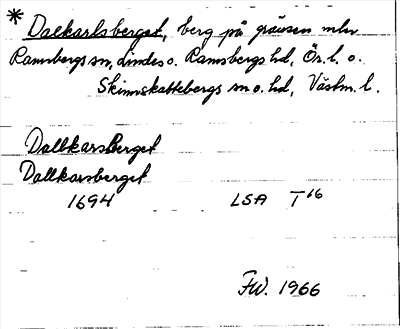 * Dalkarlsberget, berg på gränsen mln
Ramsbergs sn, Lindes o. Ramsbergs hd, Ör. l. o.
Skinnskattebergs sn o. hd, Västm. l.
Dallkarsberget
Dallkarsberget
1694 LSA T 16
FW. 1966